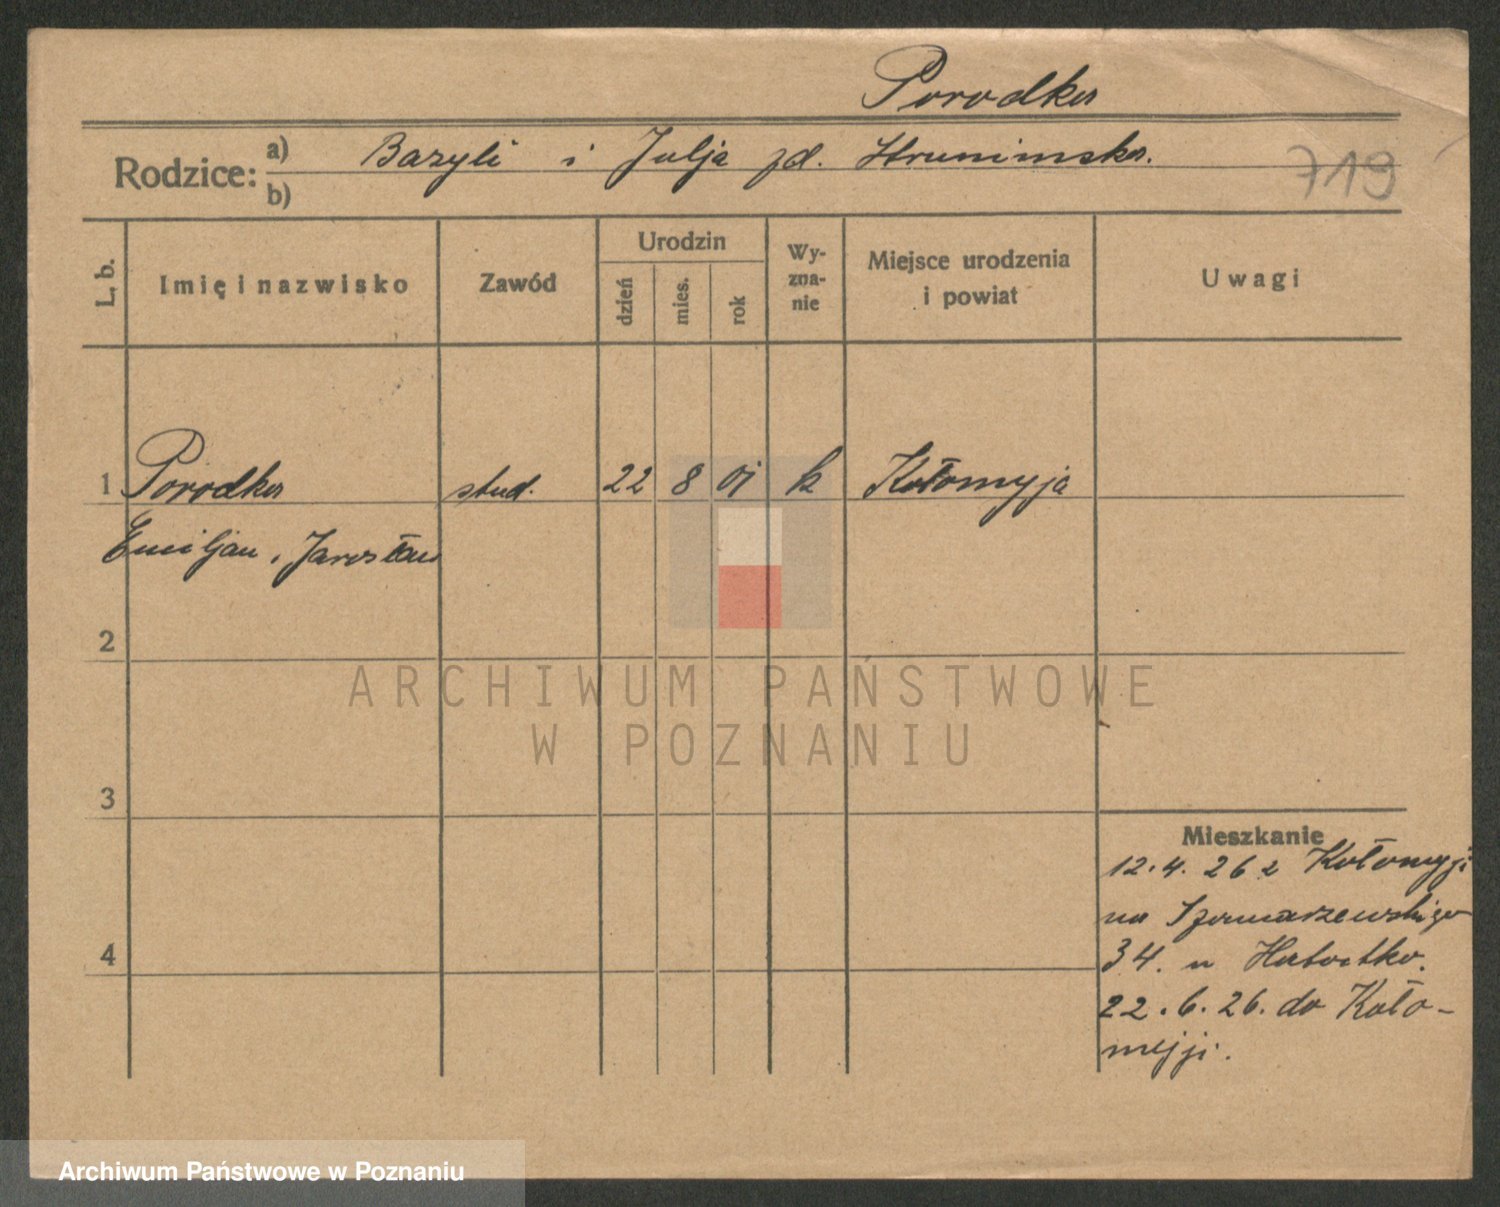 Porodko
Rodzice: a) Bazyli i Julja zd.
b)
719
L. b.
Imię i nazwisko
Zawód
Urodzin
dzień
mies.
rok
Wy-
zna-
nie
Miejsce urodzenia
i powiat
Uwagi
1 Porodko stud. 22 8 01 k Kołomyja
Emiljan, Jarosław
2
ARCHIWUM PAŃSTWOWE
W POZNANIU
3
Mieszkanie
12.4.26 z Kołomyji
na Szamarzewskiego
4
34. u
22.6.26. do Koło-
myji.
Archiwum Państwowe w Poznaniu